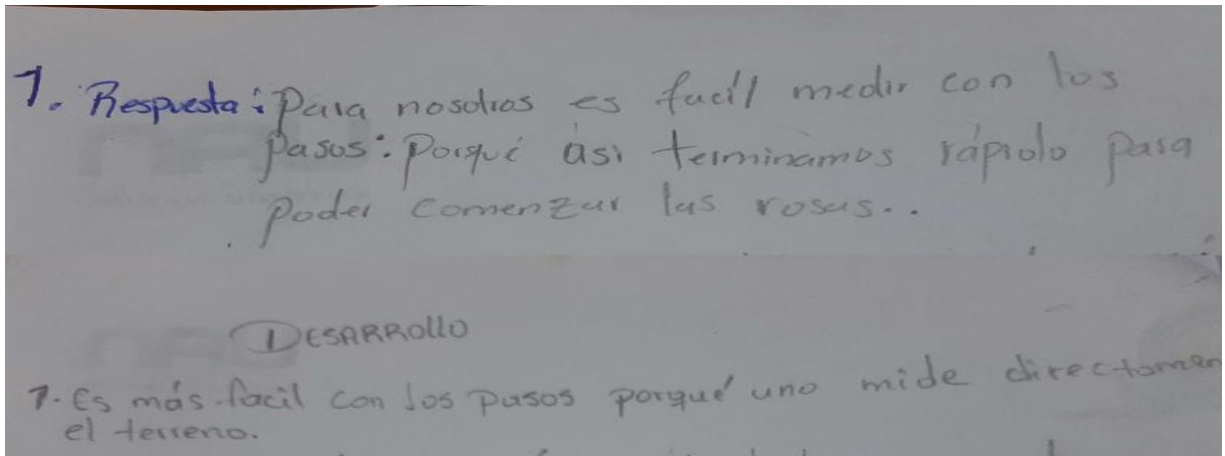 1. Respuesta: Para nosotros es facíl medir con los
pasos: Porqué ási terminamos rápido para
poder comenzar las rosas..
DESARROLLO
1. Es más facil con los pasos porqué uno mide directamen
el terreno.